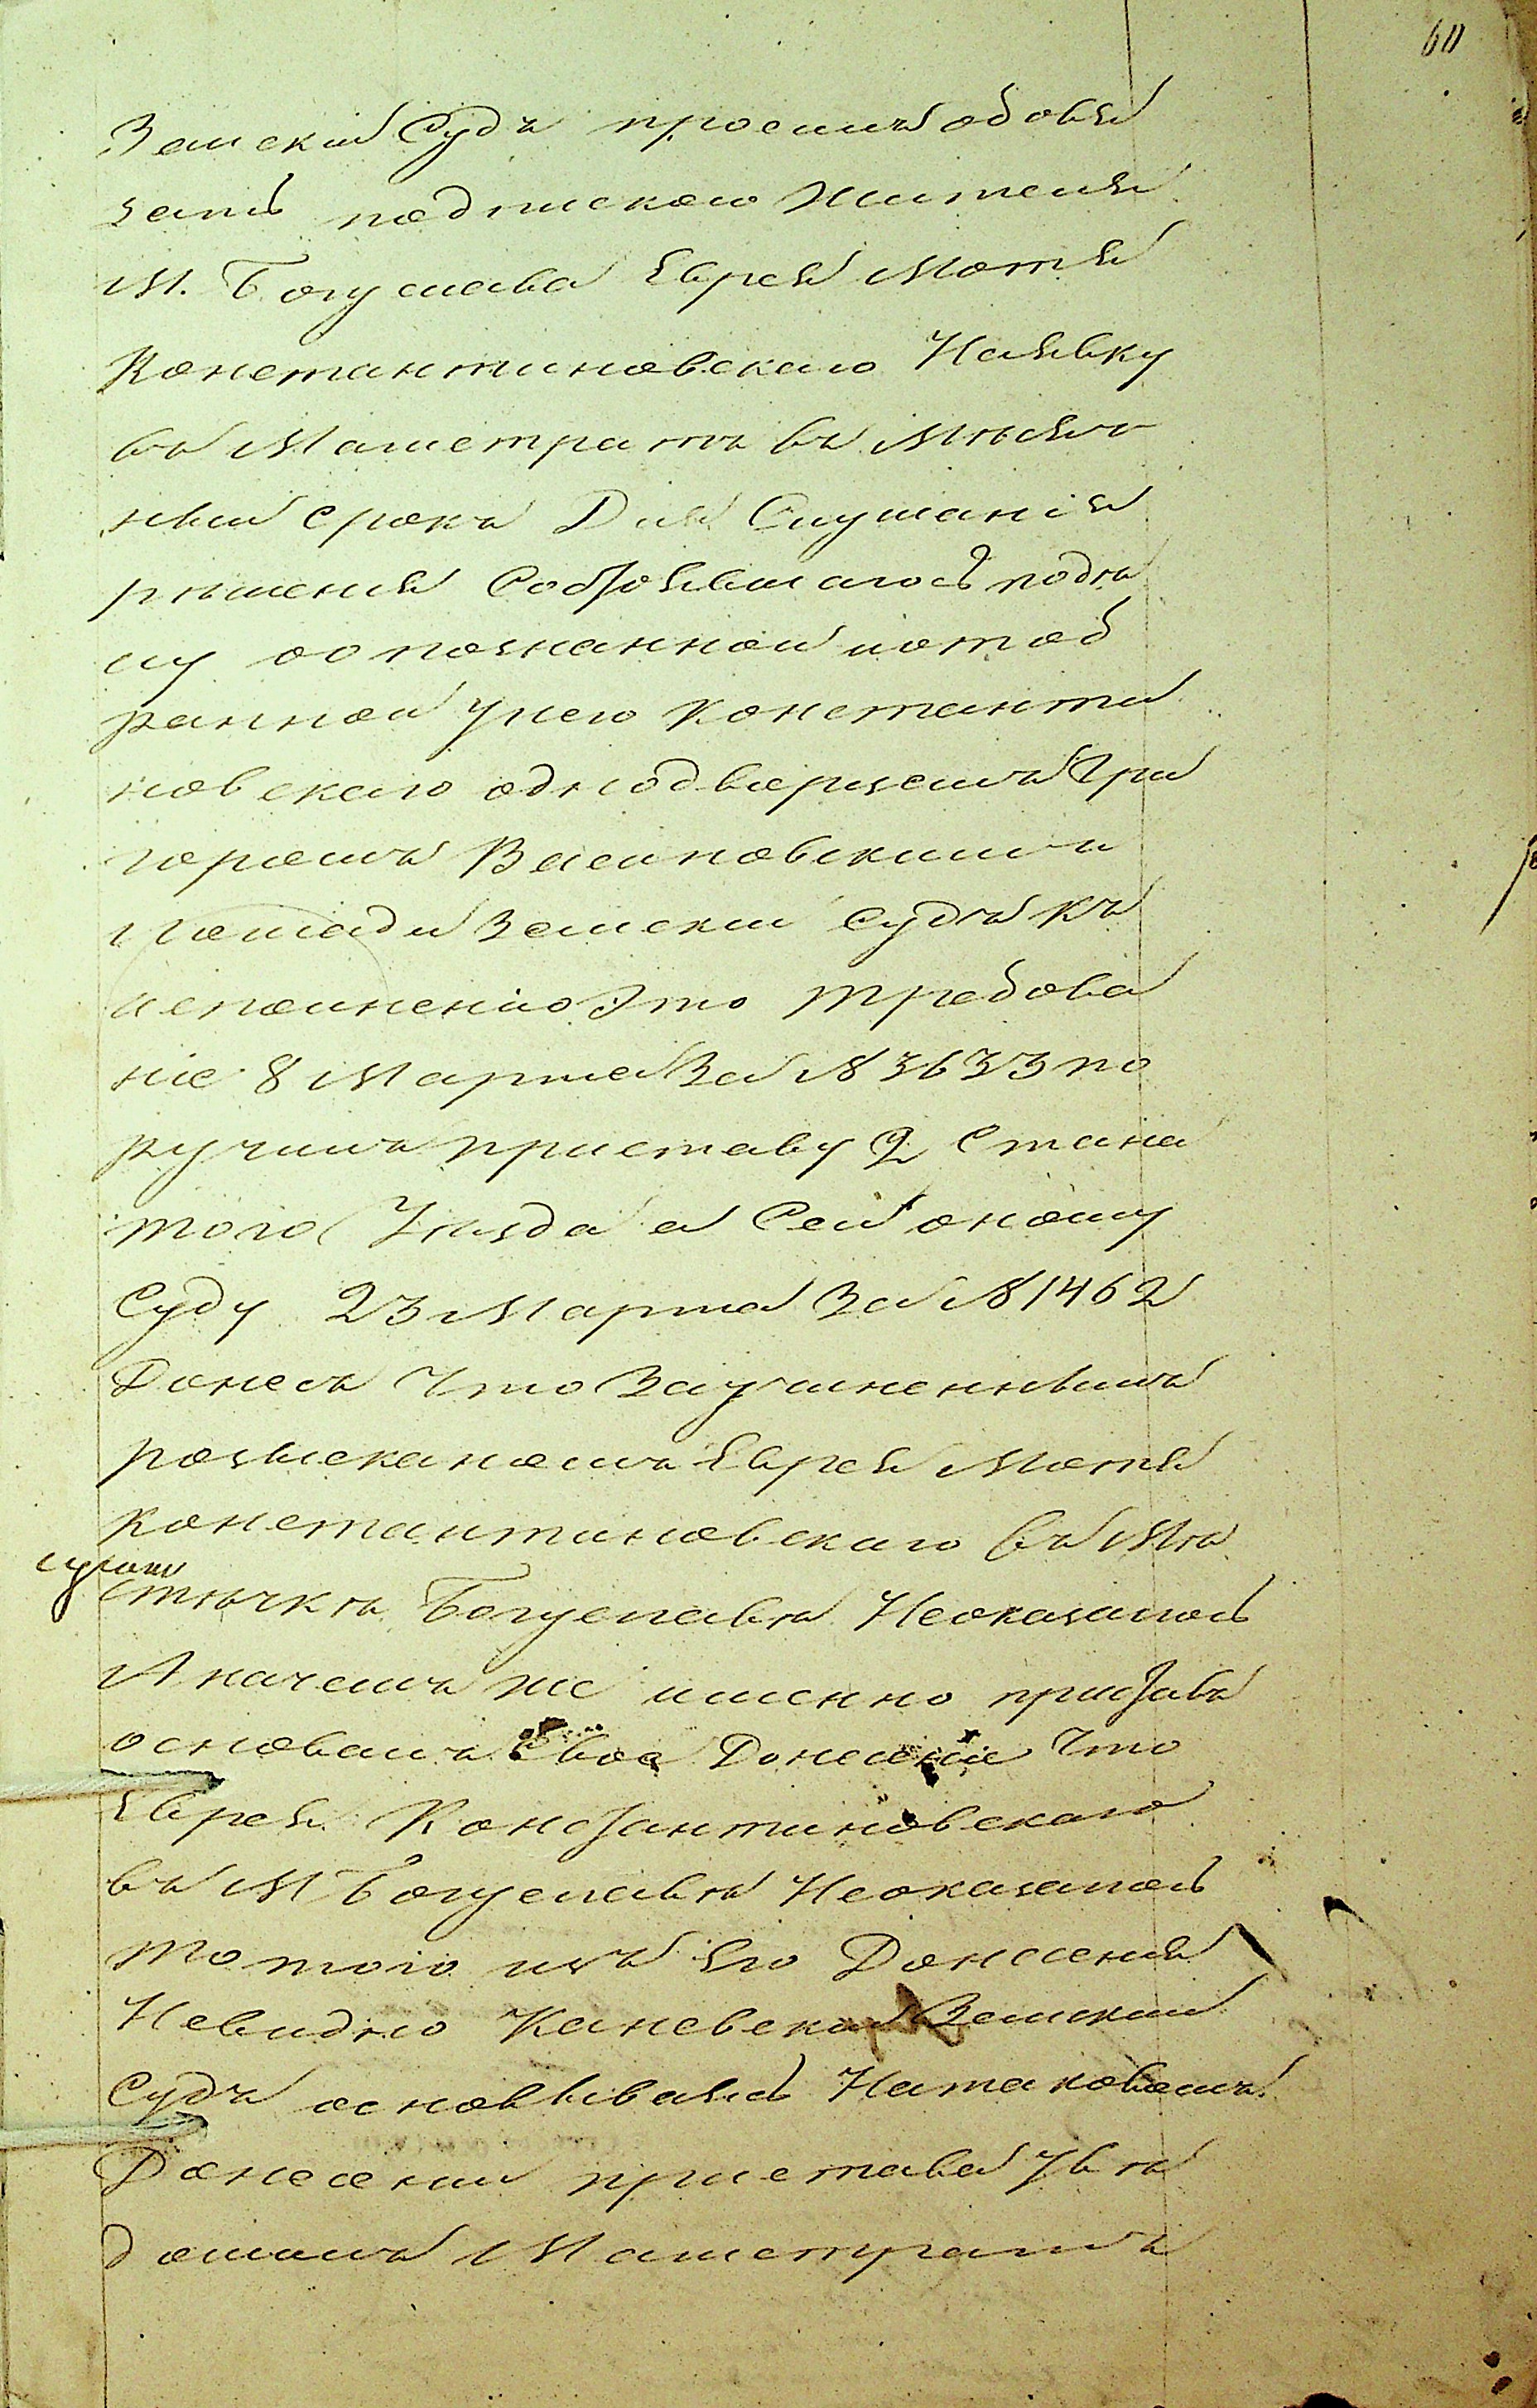 60
Земский Судъ просилъ обовя
зать подпискою Жителя
М. Богуслава Еврея Мотя
Константиновскаго Наявку
въ Магистратъ въ Мѣсяч
ный срокъ Для Слушанія
рѣшенія Состоявшагось подѣ
лу о опознанной и отоб
ранной Унего Константи
новскаго однодворцемъ Гри
горомъ Васиновскимъ
лошади Земский Судъ къ
исполненію Это Требова
ніе 8 Марта За № 3633 по
ручилъ приставу 2 Стана
того Уѣзда а Сей оному
Суду 23 Марта За № 1462
Донесъ Что За учиненнымъ
розысканіемъ Еврея Мотя
Константиновскаго въ Мѣ
стѣчкѣ Богуславѣ Неоказалось
И начемъ же именно приставъ
основалъ Свое Донесеніе Что
Еврея Константиновскаго
въ М Богуславѣ Неоказалось
то того изъ Его Донесенія
Невидно Каневский Земский
Судъ основываясь Натаковомъ
Донесении пристава Увѣ
домилъ Магистратъ